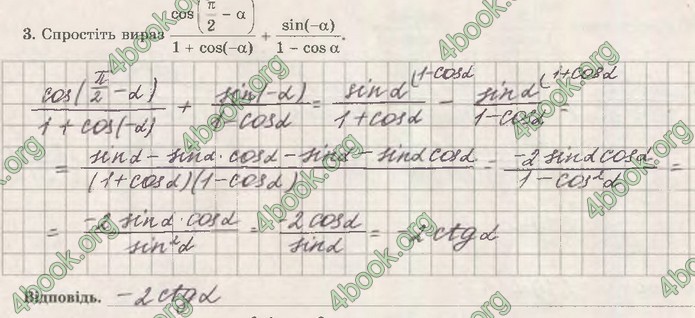 3. Спростіть вираз cos(π/2 − α)/(1 + cos(−α)) + sin(−α)/(1 − cos α).
cos(π/2 − α)/(1 + cos(−α)) + sin(−α)/(1 − cosα) = sinα^(1−cosα/(1 + cosα) − sinα^(1+cosα/(1−cosα) =
= (sinα − sinα · cosα − sinα − sinα cosα)/((1+cosα)(1−cosα)) = −2 sinα cosα/(1 − cos²α) =
= −2 sinα · cosα/sin²α = −2 cosα/sinα = −2 ctg α
Відповідь. −2 ctg α
4book.org